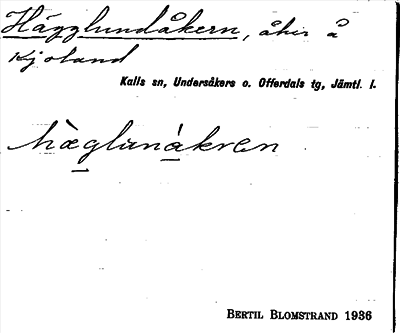 Hägglundåkern, åker å
Kjoland
Kalls sn, Undersåkers o. Offerdals tg, Jämtl. l.
hæglunákren
BERTIL BLOMSTRAND 1936